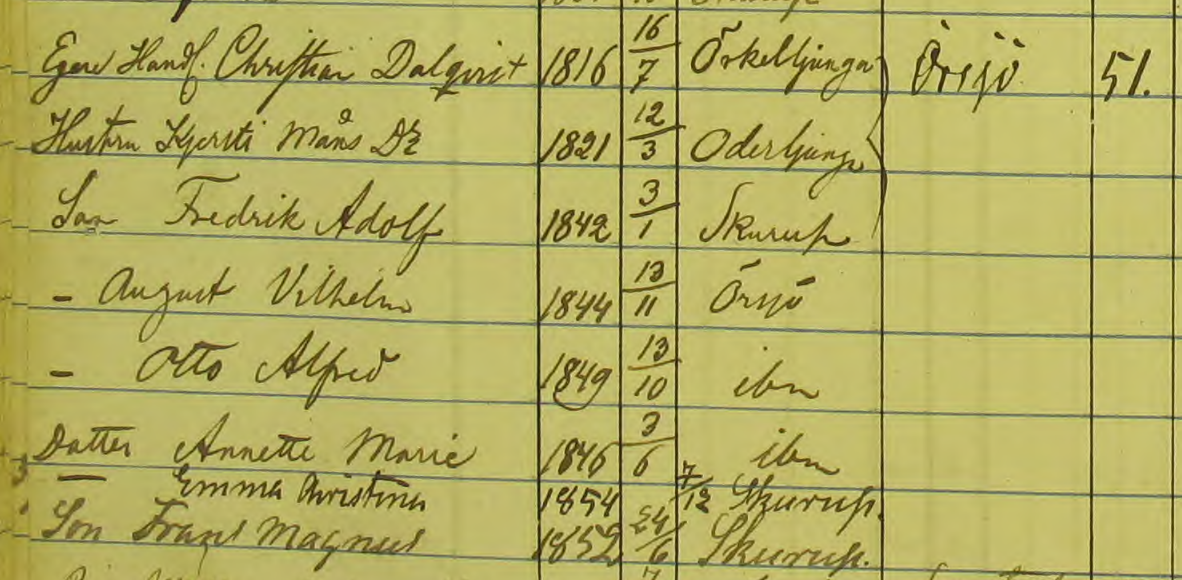 Egare Handl. Christian Dalqvist 1816 16/7 Örkelljunga Örsjö 51.
Hustru Kjersti Måns Dr 1821 12/3 Oderljunga
Son Fredrik Adolf 1842 3/1 Skurup
- August Vilhelm 1844 13/11 Örsjö
- Otto Alfred 1849 13/10 ibm
Dotter Annette Marie 1846 3/6 ibm
- Emma Christina 1854 7/12 Skurup.
Son Frans Magnus 1852 24/6 Skurup.